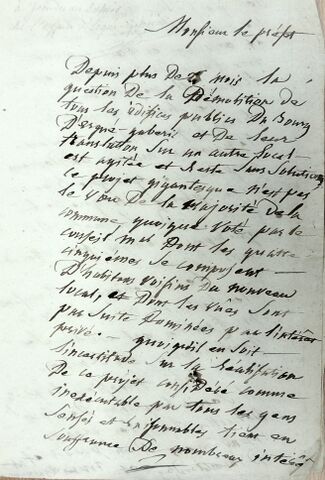 Monsieur le préfet
Depuis plus De 2 mois la
question De la Démolition de
tous les édifices publics Du Bourg
D'ergué-gaberic et De leur
translation sur un autre local
est agitée et Reste sans solution
ce projet gigantesque n'est pas
le vœu De la majorité de la
commune quoique voté par le
conseil mal Dont les quatre
cinquièmes se composent
D'habitans voisins Du nouveau
local, et Dont les vûes sont
par suite Dominées par l'intérêt
privé. quoiqu'il en soit
l'incertitude sur la Réalisation
De ce projet considéré comme
inexécutable par tous les gens
sensés et raisonnables tient en
souffrance De nombreux intérêts